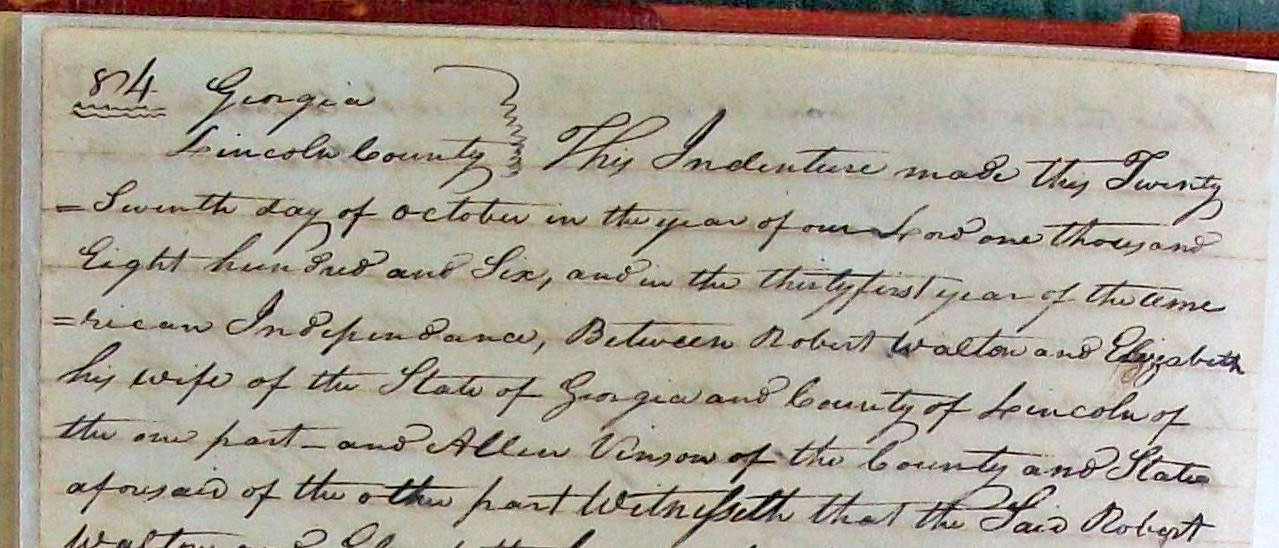 84 Georgia
Lincoln County This Indenture made this Twenty
= Seventh day of October in the year of our Lord one thousand
Eight hundred and Six, and in the thirtyfirst year of the Ame
=rican Independance, Between Robert Walton and Elizabeth
his wife of the State of Georgia and County of Lincoln of
the one part – and Allen Vinson of the County and State
aforesaid of the other part Witnesseth that the Said Robert
Walton and Elizabeth